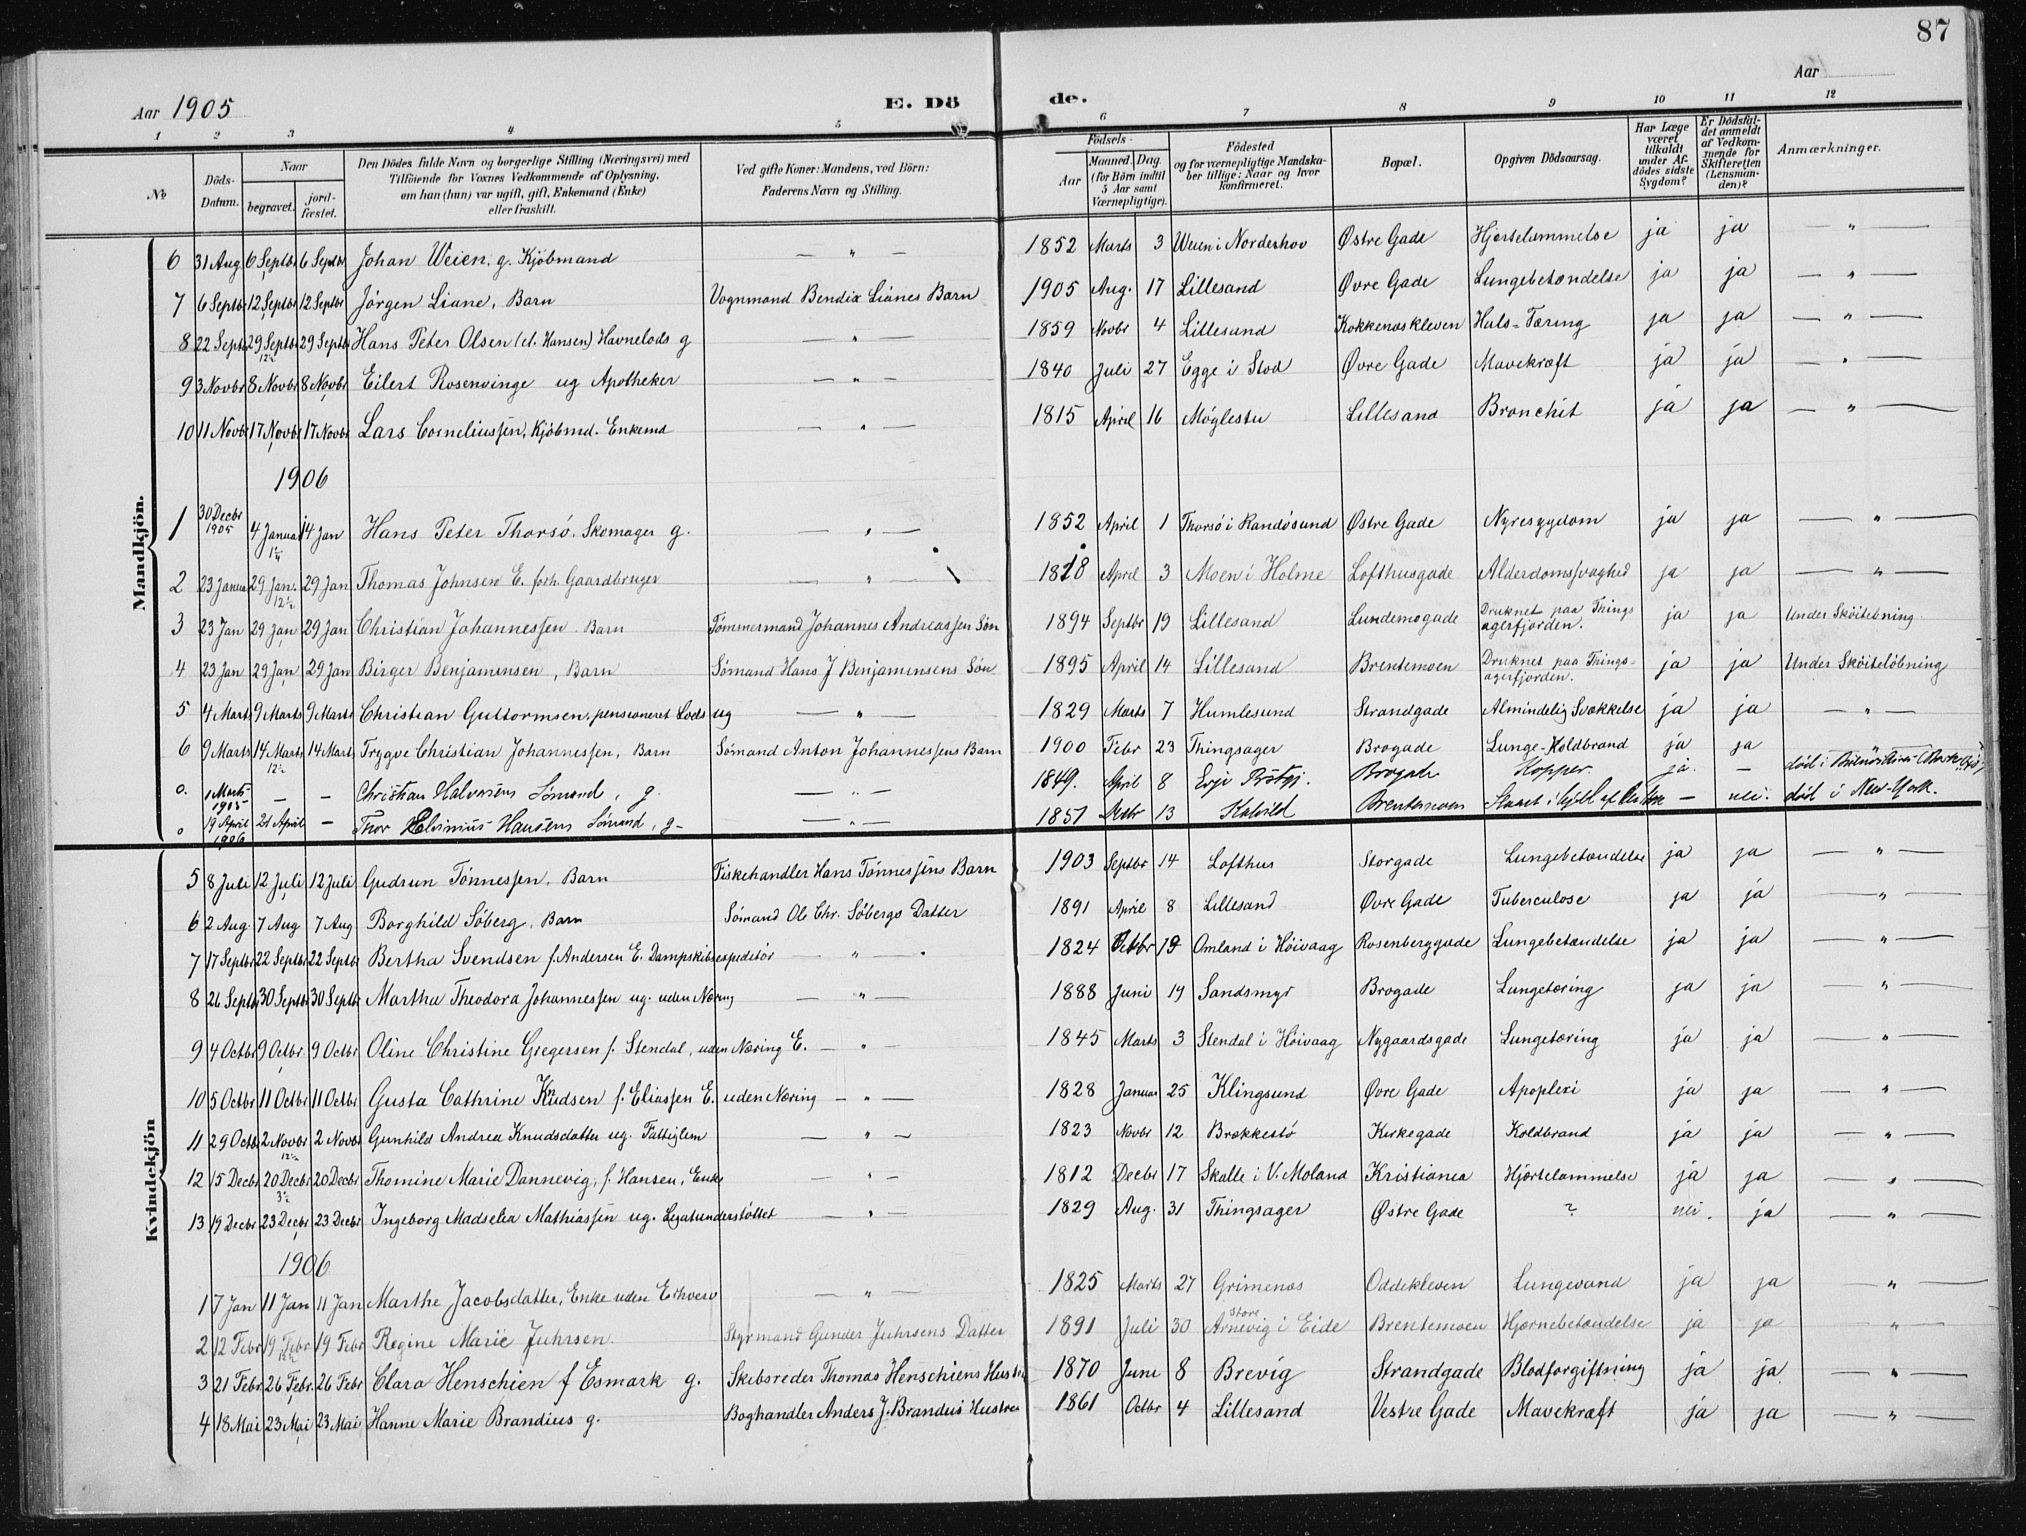 87
Aar 1905
E. Dö
de.
Aar
1 2 3 4 5 6 7 8 9 10 11 12
No
Döds-Datum.
Naar
begravet.
jordfæstet.
Den Dödes fulde Navn og borgerlige Stilling (Næringsvei) med
Tilföiende for Voxnes Vedkommende af Oplysning,
om han (hun) var ugift, gift, Enkemand (Enke)
eller fraskilt.
Ved gifte Koner: Mandens, ved Börn:
Faderens Navn og Stilling.
Födsels-
Aar
Maaned. Dag.
(for Börn indtil
5 Aar samt
Værnepligtige).
Födested
og for værnepligtige Mandska-
ber tillige: Naar og hvor
konfirmeret.
Bopæl.
Opgiven Dödsaarsag.
Har Læge
været
tilkaldt
under Af-
dödes sidste
Sygdom?
Er Dödsfal-
det anmeldt
af Vedkom-
mende for
Skifteretten
(Lensman-
den)?
Anmærkninger.
Mandkjön.
6 31 Aug 6 Septbr 6 Septbr Johan Weien, g. Kjöbmand — " — 1852 Marts 3 Weien i Norderhov Østre Gade Hjertelammelse ja ja — " —
7 6 Septbr 12 Septbr 12 Septbr Jörgen Liane, Barn Vognmand Bendix Lianes Barn 1905 Aug. 17 Lillesand Øvre Gade Lungebetændelse ja ja — " —
8 22 Septbr 29 Septbr 12½ 29 Septbr Hans Peter Olsen (el. Hansen) Havnelods g — " — 1859 Novbr 4 Lillesand Kokkenæskleven Hals=Tæring ja ja — " —
9 3 Novbr 8 Novbr 8 Novbr Eilert Rosenvinge ug Apotheker — " — 1840 Juli 27 Egge i Stod Øvre Gade Mavekræft ja ja — " —
10 11 Novbr 17 Novbr 17 Novbr Lars Corneliussen, Kjöbmd. Enkemd — " — 1815 April 16 Möglestu Lillesand Bronchit ja ja — " —
1906
1 30 Decbr 1905 4 Januar 14 Jan Hans Peter Thorsö, Skomager g. — " — 1852 April 1 Thorsö i Randösund Østre Gade Nyresygdom ja ja — " —
2 23 Januar 29 Jan. 12½ 29 Jan Thomas Johnsen E. forh. Gaardbruger — " — 1818 April 3 Moen i Holme Lofthusgade Alderdomssvaghed ja ja — " —
3 23 Jan 29 Jan 29 Jan Christian Johannessen Barn Tömmermand Johannes Andreassen Sön 1894 Septbr 19 Lillesand Lundemogade Druknet paa Things
agerfjorden. ja ja Under Sköitelöbning.
4 23 Jan 29 Jan 29 Jan Birger Benjaminsen, Barn Sömand Hans J Benjaminsens Sön 1895 April 14 Lillesand Brentemoen Druknet paa Things-
agerfjorden. ja ja Under Sköitelöbning
5 4 Marts 9 Marts 9 Marts Christian Guttormsen, pensioneret Lods ug — " — 1829 Marts 7 Humlesund Strandgade Almindelig Svækkelse ja ja — " —
6 9 Marts 14 Marts 12½ 14 Marts Trygve Christian Johannessen, Barn Sömand Anton Johannessens Barn 1900 Febr 23 Thingsager Brogade Lunge-Koldbrand ja ja
0. 1 Marts 1905 — — Christian Halvorsen Sömand, g. — " — 1849. April 8 Brogade Kopper. ja. — död i
0 19 April 1906 21 April — Thor Hansen Sömand, g — " — 1857 13 Brentemoen — nei. död i New-York.
Kvindekjön
5 8 Juli 12 Juli 12 Juli Gudrun Tönnessen, Barn Fiskehandler Hans Tönnessens Barn 1903 Septbr 14 Lofthus Storgade Lungebetændelse ja ja — " —
6 2 Aug 7 Aug 7 Aug Borghild Söberg, Barn Sömand Ole Chr. Söbergs Datter 1891 April 8 Lillesand Øvre Gade Tuberculose ja ja — " —
7 17 Septbr 22 Septbr 22 Septbr Bertha Svendsen f. Andersen E. Dampskibsexpeditör — " — 1824 Octbr 19 Omland i Höivaag Rosenberggade Lungebetændelse ja ja — " —
8 26 Septbr 30 Septbr 30 Septbr Martha Theodora Johannessen ug. uden Næring — " — 1888 Juni 19 Sandsmyr Brogade Lungetæring ja ja — " —
9 4 Octbr 9 Octbr 9 Octbr Oline Christine Gregersen f. Stendal, uden Næring E. — " — 1845 Marts 3 Stendal i Höivaag Nygaardsgade Lungetæring ja ja — " —
10 5 Octbr 11 Octbr 11 Octbr Gusta Cathrine Knudsen f. Eliassen E. uden Næring — " — 1828 Januar 25 Klingsund Øvre Gade Apoplexi ja ja — " —
11 29 Octbr 2 Novbr 12½ 2 Novbr Gunhild Andrea Knudsdatter ug. Fattiglem — " — 1823 Novbr 12 Brækkestö Kirkegade Koldbrand ja ja — " —
12 15 Decbr 20 Decbr 3½ 20 Decbr Thomine Marie Dannevig, f. Hansen, Enke — " — 1812 Decbr 17 Skalle i V. Moland Kristiania Hjertelammelse ja ja — " —
13 19 Decbr 23 Decbr 23 Decbr Ingeborg Madselia Mathiassen ug. Legatunderstöttet — " — 1829 Aug. 31 Thingsager Østre Gade ? nei. ja — " —
1906
1 7 Jan 11 Jan 11 Jan Marthe Jacobsdatter, Enke uden Erhverv — " — 1825 Marts 27 Grimenes Oddekleven Lungevand ja ja — " —
2 12 Febr 19 Febr 12½ 19 Febr Regine Marie Juhrsen. Styrmand Gunder Juhrsens Datter 1891 Juli 30 Store Arnevig i Eide Brentemoen Hjernebetændelse ja ja — " —
3 21 Febr 26 Febr. 26 Febr Clara Henschien f Esmark g. Skibsreder Thomas Henschiens Hustru 1870 Juni 8 Brevig Strandgade Blodforgiftning ja ja — " —
4 18 Mai 23 Mai 23 Mai Hanne Marie Brandius g. Boghandler Anders J. Brandius Hustru 1861 Octbr 4 Lillesand Vestre Gade Mavekræft ja ja — " —